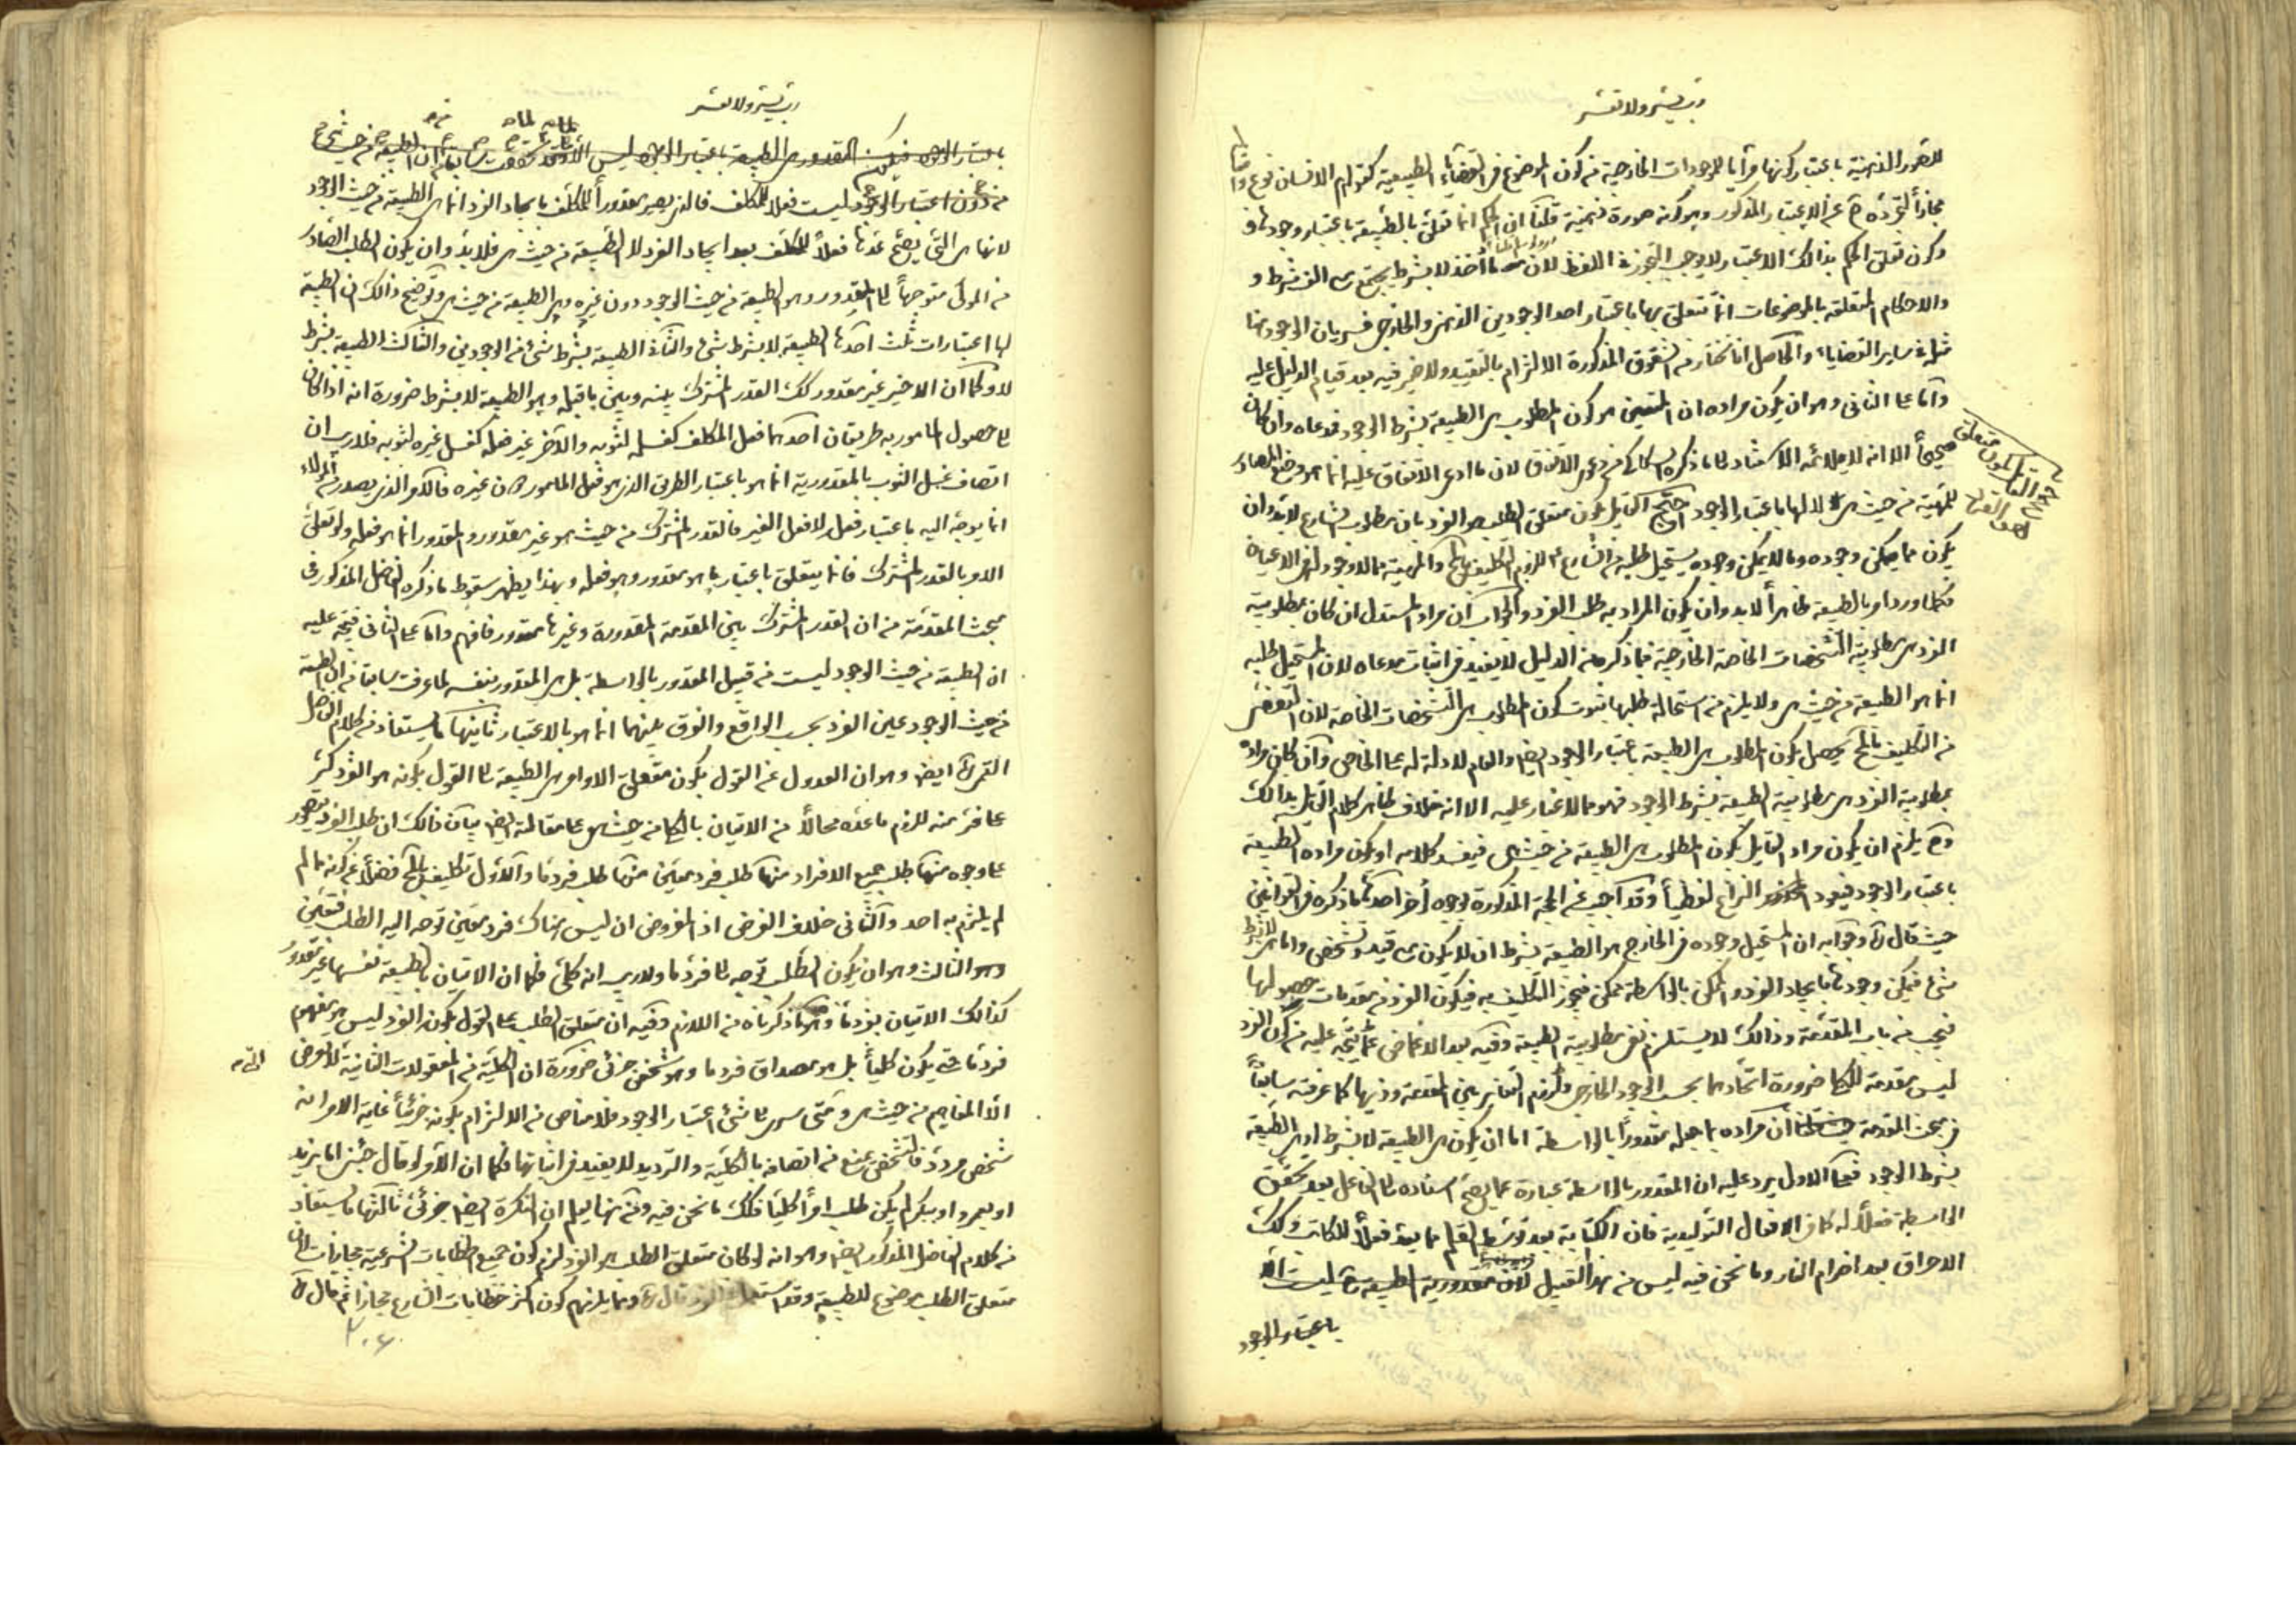 رب يسر ولا تعسر
للصور الذهنية باعتبار كونها مرآيا للموجودات الخارجية من كون الموضوع في القضايا الطبيعية كقولهم الانسان نوع
مجازاً لتجرده ح عن الاعتبار المذكور وهو كونه صورة ذهنية قلنا ان الحكم انما تعلق بالطبيعة باعتبار وجودها
وكون تعلق الحكم بذالك الاعتبار لا يوجب التجوز في اللفظ لان ما اخذ لا بشرط يجتمع مع الف شرط و
والاحكام المتعلقة بالموضوعات انما تتعلق بها باعتبار احد الوجودين الذهني والخارجي فسريان الوجود هنا
مثله في ساير القضايا والحاصل انا نختار من الشقوق المذكورة الالتزام بالتقييد ولا ضير فيه بعد قيام الدليل عليه
واما على الثاني وهو ان يكون مراده ان المتعين هو كون المطلوب هي الطبيعة بشرط الوجود فمدعاه وان كان
صحيحاً الا انه لا يلائمه الاستشهاد بما ذكره السكاكي من دعوى الاتفاق لان ما ادعى الاتفاق عليه انما هو وضع المصادر
للمهية من حيث هي لا لها باعتبار الوجود احتج القائل بكون متعلق الطلب هو الفرد بان مطلوب الشارع لابد وان
يكون مما يمكن وجوده وما لا يمكن وجوده يستحيل طلبه من الشارع للزوم التكليف بالمح والمهية مما لا وجود لها في الاعيان
فكلما ورد امر بالطبيعة ظاهراً لابد وان يكون المراد به طلب الفرد والجواب ان مراد المستدل ان كان بمطلوبية
الفرد هي مطلوبية التشخصات الخاصة الخارجية فما ذكره من الدليل لا يفيد في اثبات مدعاه لان المستحيل طلبه
انما هو الطبيعة من حيث هي ولا يلزم من استحالة طلبها ثبوت كون المطلوب هي التشخصات الخاصة لان التفصي
من التكليف بالمح يحصل بكون المطلوب هي الطبيعة باعتبار الوجود ايضا والعام لا دلالة له على الخاص وان كان مراده
بمطلوبية الفرد هي مطلوبية الطبيعة بشرط الوجود فهو مما لا غبار عليه الا انه خلاف ظاهر كلام القائل بذالك
وح يلزم ان يكون مراد القايل بكون المطلوب هي الطبيعة من حيث هي فيفسد كلامه او يكون مراده الطبيعة
باعتبار الوجود فيعود النزاع لفظياً وقد اجيب عن الحجة المذكورة بوجوه أخر احدها ما ذكره في القوانين
حيث قال ره وجوابه ان المستحيل وجوده في الخارج هو الطبيعة بشرط ان لا يكون مع قيد وتشخص واما هي لا بشرط
شئ فيمكن وجودها بايجاد الفرد والممكن بالواسطة ممكن فيجوز التكليف به فيكون الفرد من مقدمات حصولها
فيجب من باب المقدمة وذالك لا يستلزم نفي مطلوبية الطبيعة وفيه بعد الاغماض عما يتجه عليه من كون الفرد
ليس مقدمة للكلي ضرورة اتحادهما بحسب الوجود الخارجي ولزوم التغاير بين المقدمة وذيها كما عرفته سابقاً
في مبحث المقدمة ان مراده بما جعله مقدوراً بالواسطة اما ان يكون هي الطبيعة لا بشرط او هي الطبيعة
بشرط الوجود فعلى الاول يرد عليه ان المقدور بالواسطة عبارة عما يصح اسناده الى الفاعل بعد تحقق
الواسطة فعلاً له كما في الافعال التوليدية فان الكتابة بعد توسط القلم مما يعد فعلاً للكاتب وكذلك
الاحراق بعد اضرام النار وما نحن فيه ليس من هذا القبيل لان مقدورية الطبيعة ليست الا
باعتبار الوجود
رب يسر ولا تعسر
باعتبار الوجود فيكون المقدور هي الطبيعة باعتبار الوجود ليس الا لما عرفت سابقا ان الطبيعة من حيث هي
من دون اعتبار الوجود ليست فعلا للمكلف فالذي يصير مقدوراً للمكلف بايجاد الفرد انما هي الطبيعة من حيث الوجود
لانها هي التي يصح عدها فعلاً للمكلف بعد ايجاد الفرد لا الطبيعة من حيث هي فلابد وان يكون الطلب الصادر
من المولى متوجهاً الى المقدور وهو الطبيعة من حيث الوجود دون غيره وهي الطبيعة من حيث هي وتوضيح ذالك ان الطبيعة
لها اعتبارات ثلث احدها الطبيعة لا بشرط شئ والثاني الطبيعة بشرط شئ من الوجودين والثالث الطبيعة بشرط
لا وكما ان الاخير غير مقدور كذلك القدر المشترك بينه وبين ما قبله وهو الطبيعة لا بشرط ضرورة انه اذا كان
لحصول المامور به طريقان احدهما فعل المكلف كغسله لثوبه والآخر غير فعله كغسل غيره لثوبه فلا ريب ان
اتصاف غسل الثوب بالمقدورية انما هو باعتبار الطريق الذي هو فعل المامور دون غيره فالامر الذي يصدر من المولى
انما يوجه اليه باعتبار فعله لا فعل الغير فالقدر المشترك من حيث هو غير مقدور والمقدور انما هو فعله ولو تعلق
الامر بالقدر المشترك فانما يتعلق باعتبار ما هو مقدور وهو فعله وبهذا يظهر سقوط ما ذكره الفاضل المذكور في
مبحث المقدمة من ان القدر المشترك بين المقدمة المقدورة وغيرها مقدور فافهم واما على الثاني فيتجه عليه
ان الطبيعة من حيث الوجود ليست من قبيل المقدور بالواسطة بل هي المقدور بنفسه لما عرفت سابقا من ان الطبيعة
من حيث الوجود عين الفرد بحسب الواقع والفرق بينهما انما هو بالاعتبار ثانيها ما يستفاد من كلام الفاضل
القمي ره ايضا وهو ان العدول عن القول بكون متعلق الاوامر هي الطبيعة الى القول بكونه هو الفرد كر
على ما فر منه للزوم ما عده محالاً من الاتيان بالكلي من حيث هو على مقالته ايضا بيان ذالك ان طلب الفرد يتصور
على وجوه منها طلب جميع الافراد منها طلب فرد معين منها طلب فرد ما والاول تكليف بالمح فضلاً عن كونه مما لم
لم يلتزم به احد والثاني خلاف الفرض اذ المفروض ان ليس هناك فرد معين توجه اليه الطلب فتعين
وهو الثالث وهو ان يكون الطلب توجه الى فرد ما ولا ريب انه كلي فكما ان الاتيان بالطبيعة نفسها غير مقدور
كذالك الاتيان بفرد ما وهو ما ذكرناه من اللازم وفيه ان متعلق الطلب على القول بكونه الفرد ليس هو مفهوم
فرد ما حتى يكون كلياً بل هو مصداق فرد ما وهو شخص جزئي ضرورة ان الكلية من المعقولات الثانية لا تعرض
الا المفاهيم من حيث هي ومتى سرى الى شئ اعتبار الوجود فلا مناص من الالتزام بكونه جزئياً غاية الامر انه
شخص مردد فالتشخص يمنع من اتصافه بالكلية والترديد لا يفيد في اثباتها فكما ان الآمر لو قال جئني اما بزيد
او بعمرو او ببكر لم يكن طلب امراً كلياً فكذلك ما نحن فيه ومن هنا يعلم ان النكرة ايضا جزئي ثالثها ما يستفاد
من كلام الفاضل المذكور ايضا وهو انه لو كان متعلق الطلب هو الفرد لزم كون جميع الخطابات الشرعية مجازات لان
متعلق الطلب موضوع للطبيعة وقد استعمل في الفرد قال ره ومما يلزمهم كون اكثر خطابات الشارع مجازا ثم قال ره